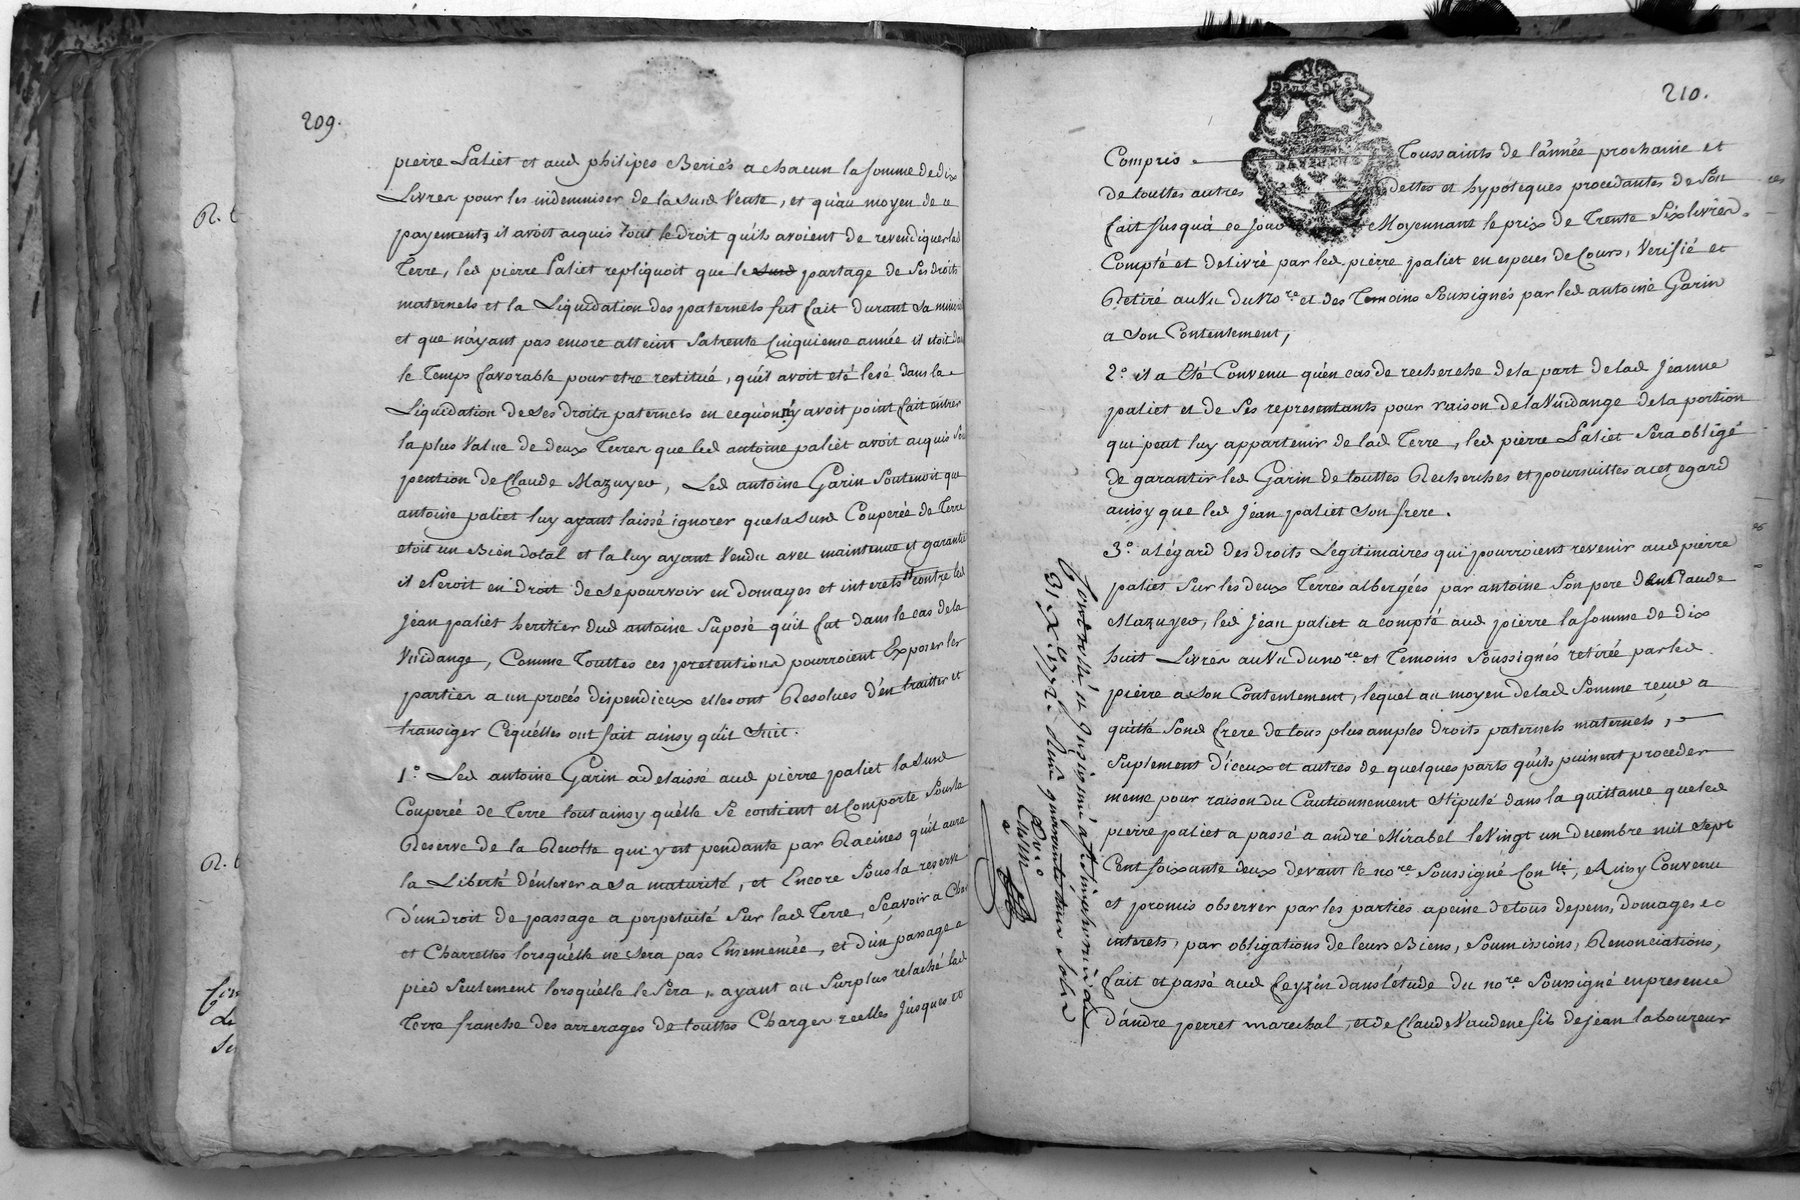 209.
pierre Paliet et aud philipes Beriés a chacun la somme de dix
Livres pour les indemniser de la susd Vente, et qu'au moyen de ce
payement, il avoit acquis tout le droit qu'ils avoient de revendiquer lad
Terre, led pierre Paliet repliquoit que le susd partage de ses droits
maternels et la Liquidation des paternels fut fait durant sa minorité
et que n'ayant pas encore atteint sa trente Cinquieme année il etoit dans
le Temps favorable pour etre restitué, qu'il avoit eté lesé dans la
Liquidation de ses droits paternels en ce qu'on n'y avoit point fait entrer
la plus Value de deux Terres que led antoine paliet avoit acquis sous
pention de Claude Mazuyer, Led antoine Garin Soutenoit que
antoine paliet luy ayant laissé ignorer que la susd Couperée de Terre
etoit un Bien dotal et la luy ayant Vendu avec maintenue et garantie
il Seroit en droit de se pourvoir en domages et interets contre led
jean paliet heritier dud antoine Suposé qu'il fut dans le cas de la
Vuidange, Comme Touttes ces pretentions pourroient Exposer les
parties a un procés dispendieux elles ont Resolues d'en traitter et
transiger Ce qu'elles ont fait ainsy qu'il Suit.
1.° Led antoine Garin a delaissé aud pierre paliet la susd
Couperée de Terre tout ainsy qu'elle Se contient et Comporte Sous la
Reserve de la Recolte qui y est pendante par Racines qu'il aura
la Liberté d'enlever a sa maturité, et Encore Sous la reserve
d'un droit de passage a perpetuité Sur lad Terre, Sçavoir a Char
et Charrettes lorsqu'elle ne Sera pas Ensemencée, et d'un passage a
pied Seulement lorsqu'elle le Sera, ayant au Surplus relaché lad
Terre franche des arrerages de touttes Charges reelles jusques et
210.
Compris Toussaints de l'année prochaine et
de touttes autres dettes et hypoteques procedantes de Son
fait jusqu'à ce jour Moyennant le prix de Trente Six livres
Compté et delivré par led pierre paliet en especes de Cours, Verifié et
Retiré au Vu du No.re et des Temoins Soussignés par led antoine Garin
a Son Contentement,
2.° il a Eté Convenu qu'en cas de recherche de la part de lad jeanne
paliet et de Ses representants pour raison de la Vuidange de la portion
qui peut luy appartenir de lad Terre, led pierre Paliet Sera obligé
de garantir led Garin de touttes Recherches et poursuittes a cet egard
ainsy que led jean paliet Son frere.
3.° a l'égard des droits Legitimaires qui pourroient revenir aud pierre
paliet Sur les deux Terres albergées par antoine Son pere de Claude
Mazuyer, led jean paliet a compté aud pierre la somme de dix
huit Livres au Vu du no.re et Temoins Soussignés retirée par led
pierre a Son Contentement, lequel au moyen de lad Somme reçue a
quitté Sond frere de tous plus amples droits paternels maternels,
Suplement d'iceux et autres de quelques parts qu'ils puissent proceder
meme pour raison du Cautionnement Stipulé dans la quittance que led
pierre paliet a passé a andré Mirabel le Vingt un decembre mil Sept
Cent Soixante deux devant le no.re Soussigné, Ainsy Convenu
et promis observer par les parties a peine de tous depens, domages et
interets, par obligations de leurs Biens, Soumissions, Renonciations,
fait et passé aud feyzin dans l'étude du no.re Soussigné en presence
d'andre perret marechal, et de Claude Vaudene fils de jean laboureur
Controllé et Insinué a
31 X.bre 1772. Reçu quarante deux sols